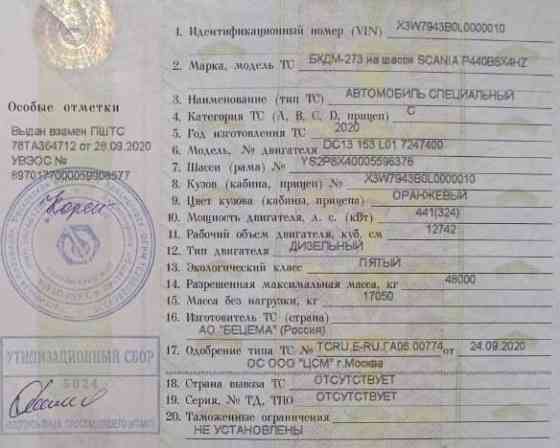 1. Идентификационный номер (VIN) X3W7943B0L0000010
2. Марка, модель ТС БКДМ-273 на шасси SCANIA P440B6X4HZ
3. Наименование (тип ТС) АВТОМОБИЛЬ СПЕЦИАЛЬНЫЙ
4. Категория ТС (A, B, C, D, прицеп) C
5. Год изготовления ТС 2020
6. Модель, № двигателя DC13 153 L01 7247400
7. Шасси (рама) № YS2P6X40005596376
8. Кузов (кабина, прицеп) № X3W7943B0L0000010
9. Цвет кузова (кабины, прицепа) ОРАНЖЕВЫЙ
10. Мощность двигателя, л. с. (кВт) 441(324)
11. Рабочий объем двигателя, куб. см 12742
12. Тип двигателя ДИЗЕЛЬНЫЙ
13. Экологический класс ПЯТЫЙ
14. Разрешенная максимальная масса, кг 48000
15. Масса без нагрузки, кг 17050
16. Изготовитель ТС (страна)
АО "БЕЦЕМА" (Россия)
17. Одобрение типа ТС № ТСRU.E-RU.ГА06.00774 от 24.09.2020
ОС ООО "ЦСМ" г.Москва
18. Страна вывоза ТС ОТСУТСТВУЕТ
19. Серия, № ТД, ТПО ОТСУТСТВУЕТ
20. Таможенные ограничения
НЕ УСТАНОВЛЕНЫ
Особые отметки
Выдан взамен ПШТС
78ТА364712 от 28.09.2020
УВЭОС №
8970177000059908577
УТИЛИЗАЦИОННЫЙ СБОР
5024